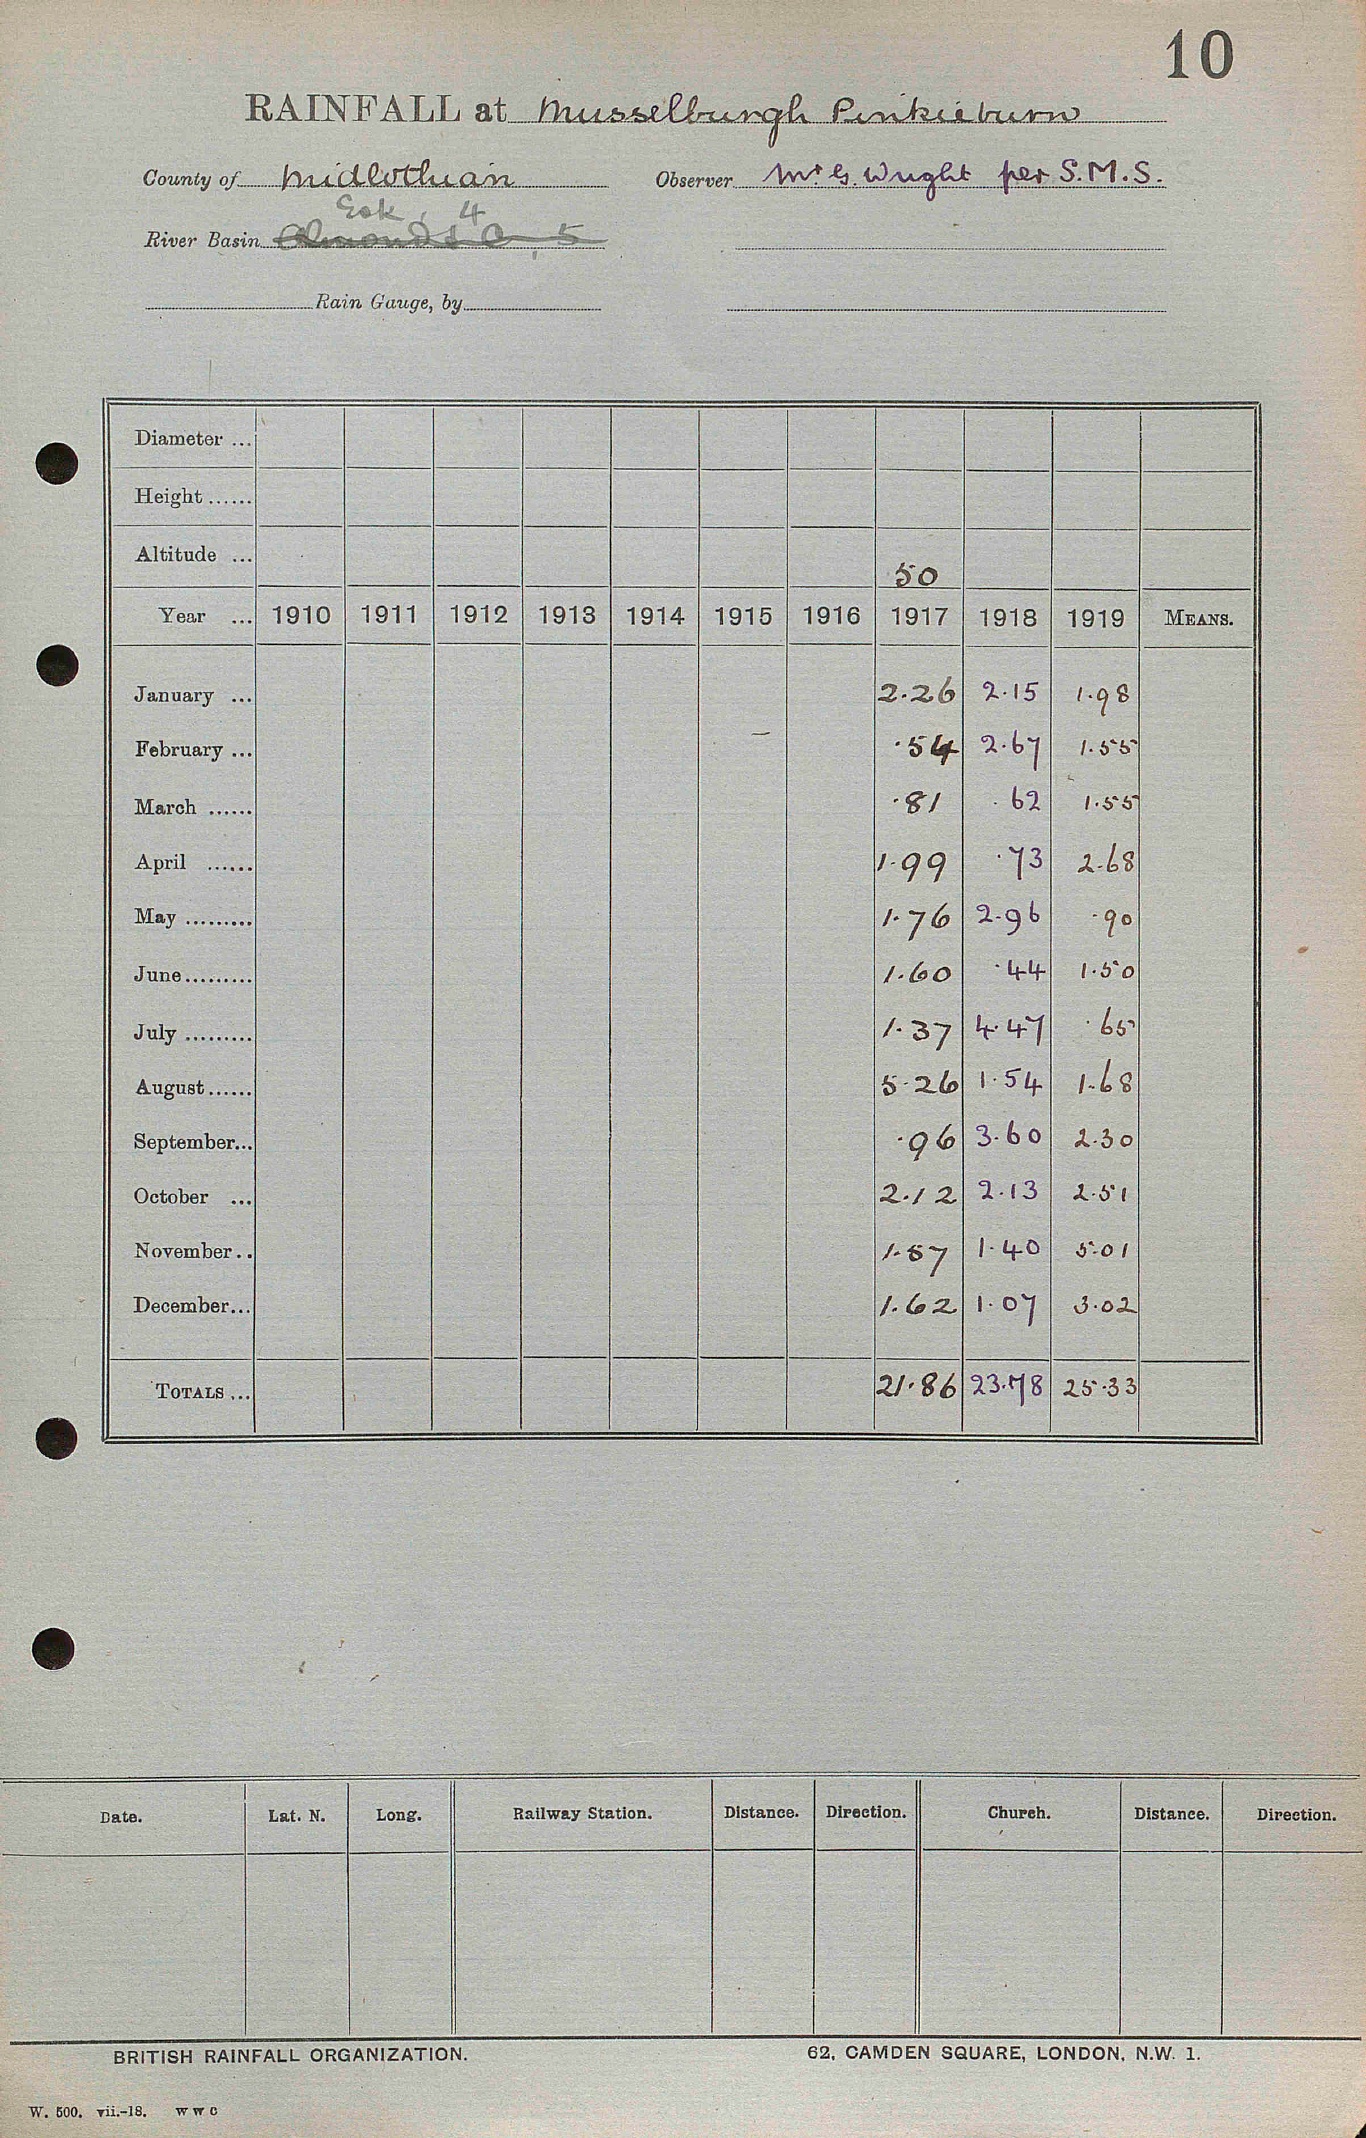 10
RAINFALL at Musselburgh Pinkieburn
County of Midlothian Observer Mr G. Wright per S.M.S.
Esk, 4
River Basin Almond & C, 5
Rain Gauge, by
Diameter ...
Height ......
Altitude ... 50
Year ... 1910 1911 1912 1913 1914 1915 1916 1917 1918 1919 MEANS.
January ... 2.26 2.15 1.98
February ... — .54 2.67 1.55
March ...... .81 .62 1.55
April ...... 1.99 .73 2.68
May ......... 1.76 2.96 .90
June ......... 1.60 .44 1.50
July ......... 1.37 4.47 .65
August ...... 5.26 1.54 1.68
September... .96 3.60 2.30
October ... 2.12 2.13 2.51
November .. 1.57 1.40 5.01
December... 1.62 1.07 3.02
TOTALS ... 21.86 23.78 25.33
Date. Lat. N. Long. Railway Station. Distance. Direction. Church. Distance. Direction.
BRITISH RAINFALL ORGANIZATION. 62, CAMDEN SQUARE, LONDON, N.W. 1.
W. 500. vii.-18. W W C